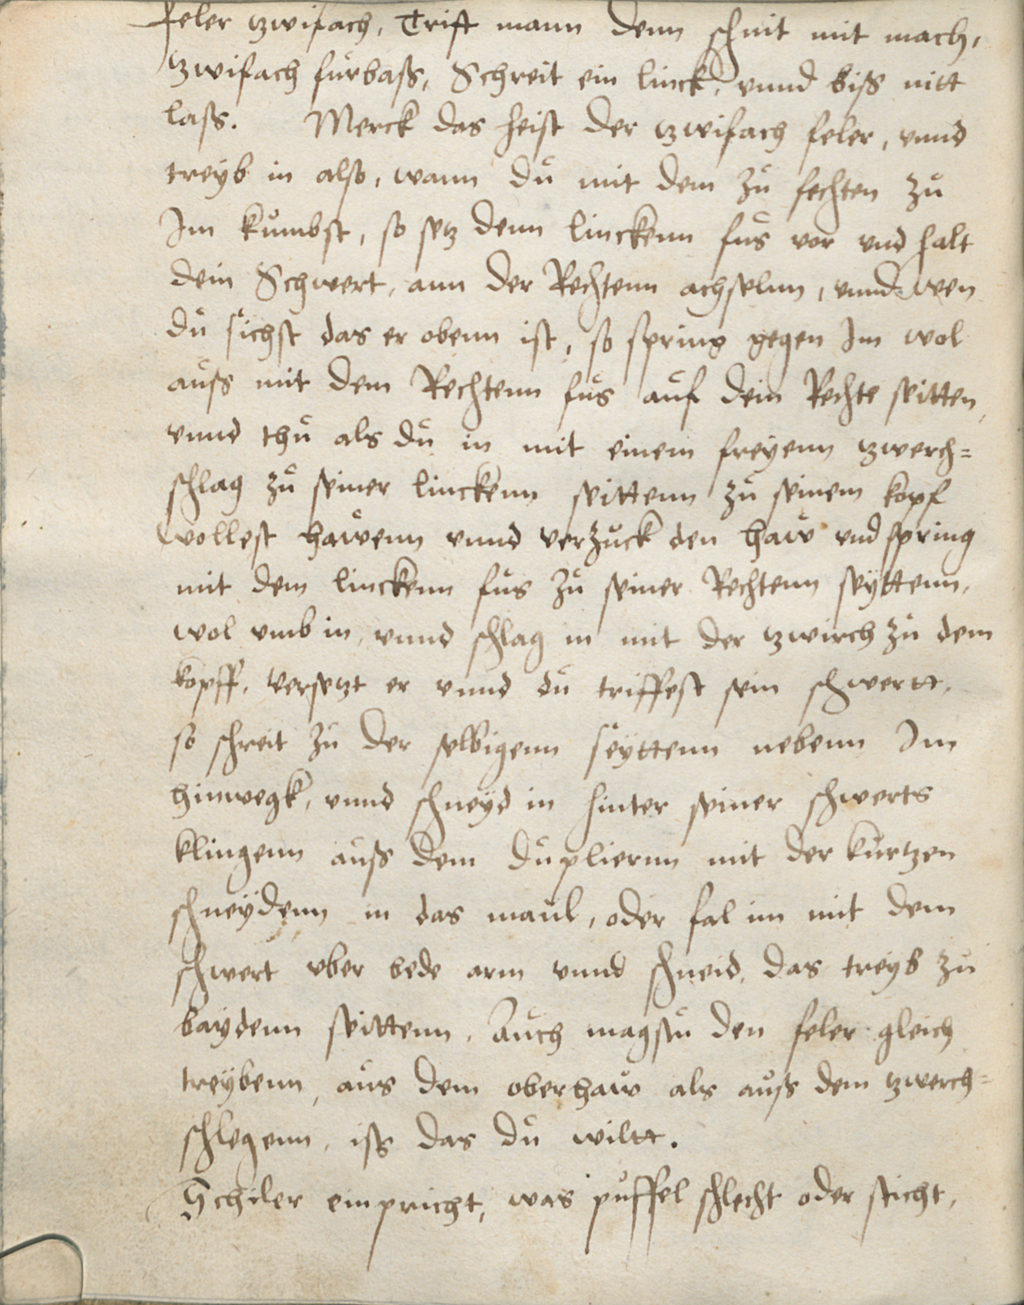 feler zwifach, Trift mann denn schnit mit mach,
zwifach fürbass, Schreit ein linck, vnnd biss nitt
lass. Merck das heist der zwifach feler, vnnd
treyb in also, wann dü mit dem zü fechten zü
Im kümbst, so setz denn linckenn füs vor vnd halt
dein Schwert, ann der Rechtenn achselnn, vnnd wen
dü sichst das er obenn ist, so spring gegen Im wol
aüss mit dem Rechtenn füs aüf dein Rechte seitten,
vnnd thü als dü in mit einem freyenn zwerch=
schlag zü seiner linckenn seittenn zü seinem kopf
wollest hawenn vnnd verzück den haw vnd spring
mit dem linckenn füs zü seiner Rechtenn seyttenn,
wol vmb in, vnnd schlag in mit der zwirch zü dem
kopff, versetzt er vnnd dü triffest sein schwertt,
so schreit zü der selbigenn seyttenn nebenn Im
hinwegk, vnnd schneyd in hinter seiner schwerts
klingenn aüss dem düpliernn mit der kürtzen
schneydenn in das maül, oder fal im mit dem
schwert vber bede arm vnnd schneid, das treyb zü
baydenn seittenn. Aüch magstü den feler gleich
treybenn, aüs dem oberhaw als aüss dem zwerch=
schlegenn, iss das dü wiltt.
Schiler einpricht, was püffel schlecht oder sticht,